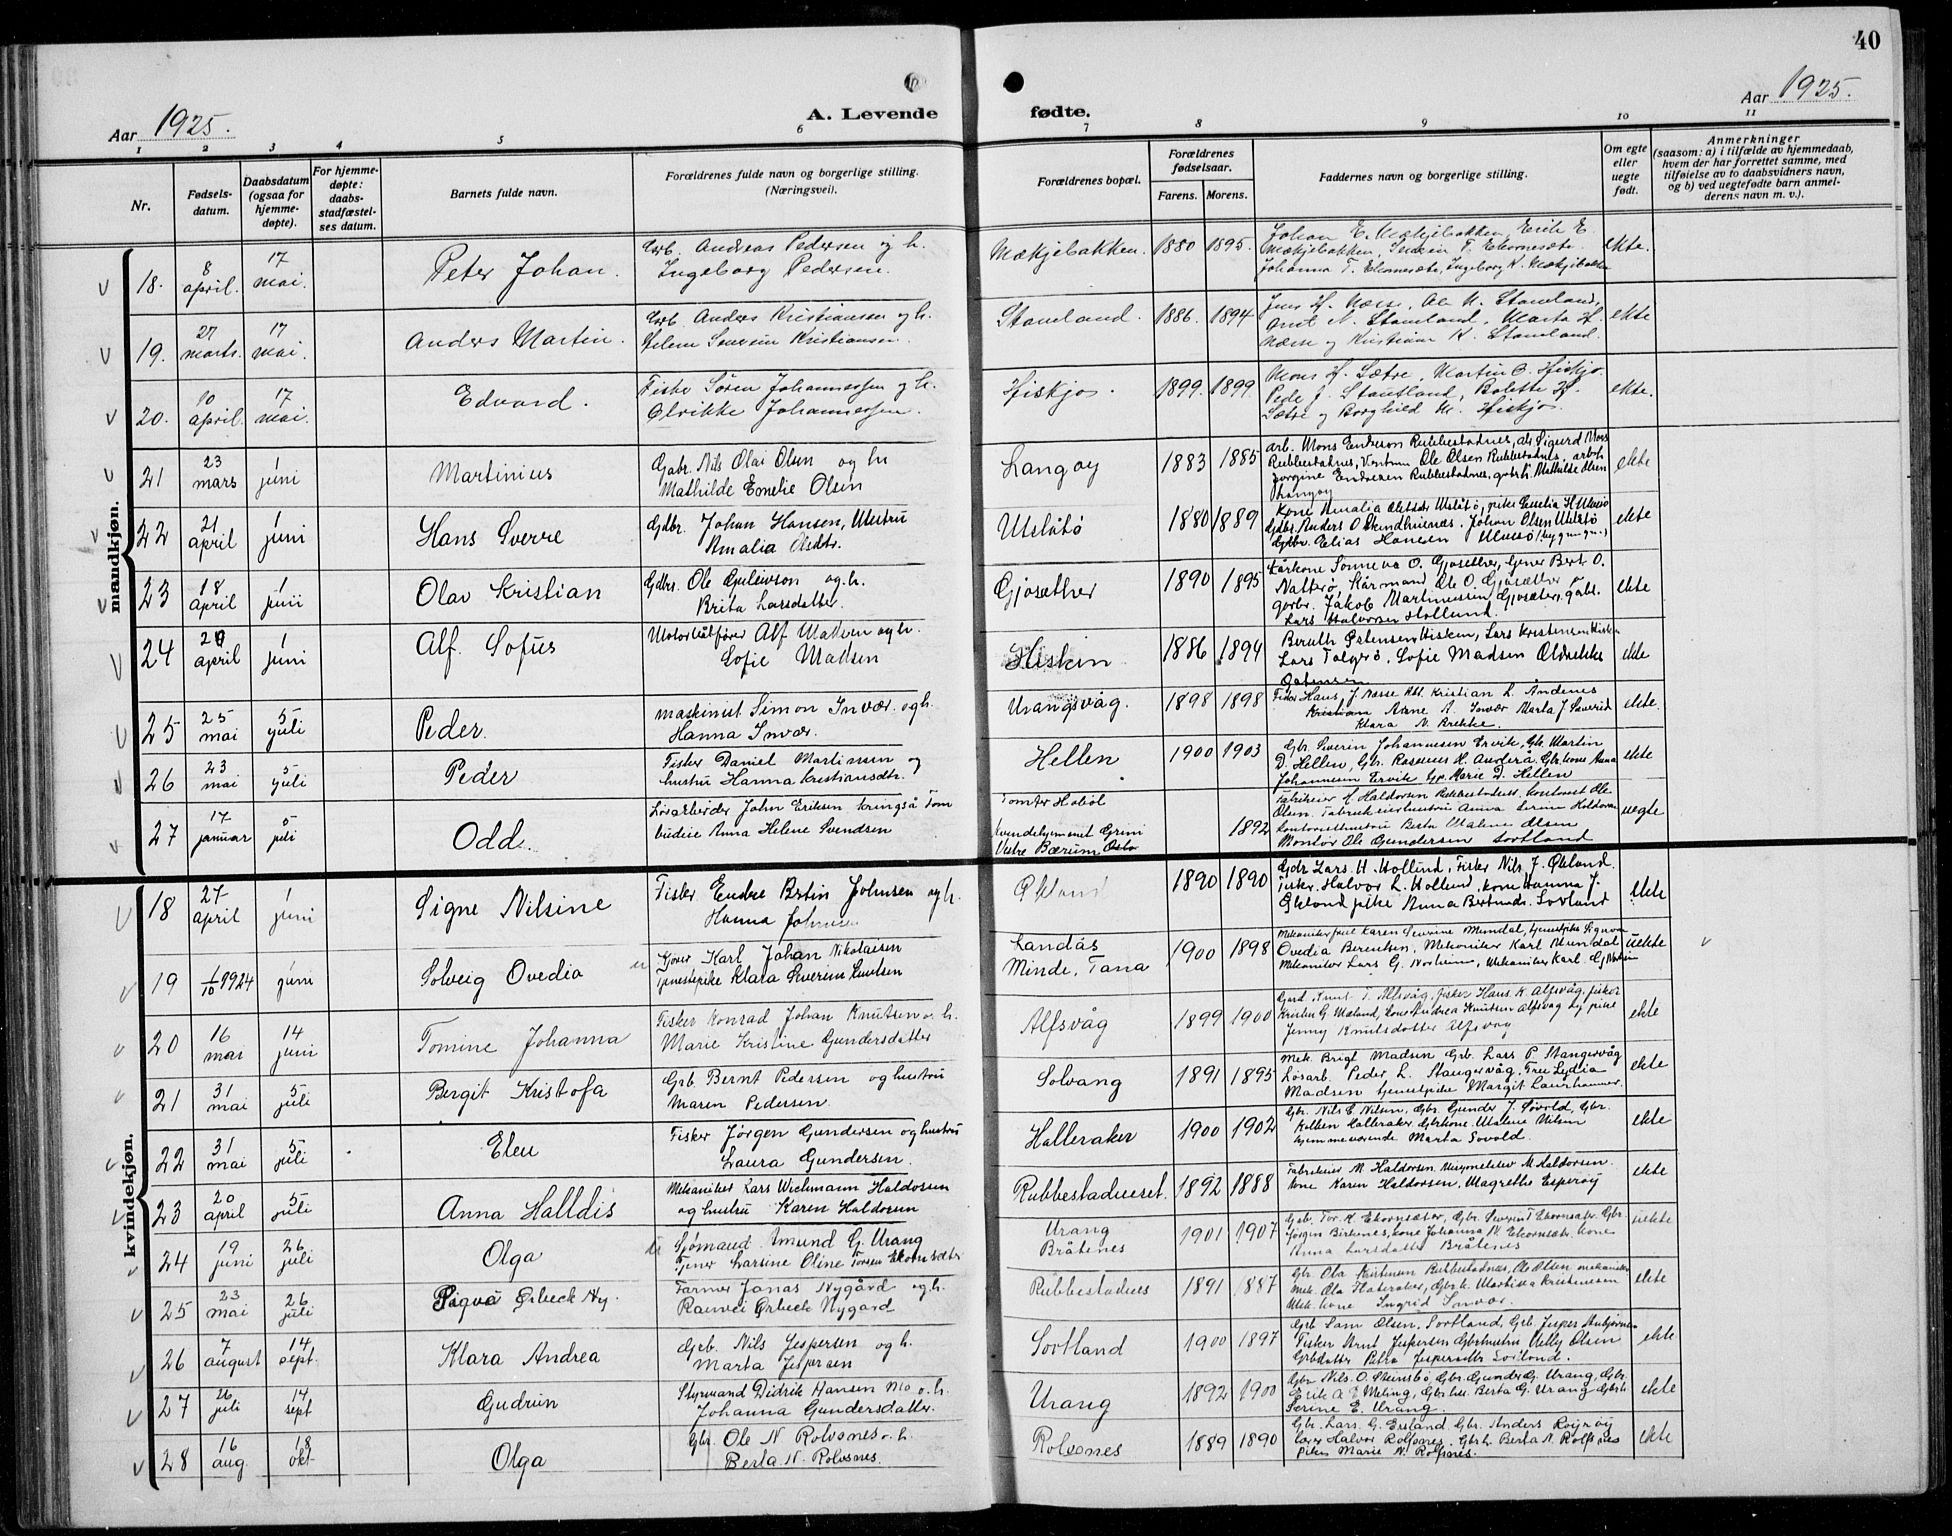 40
Aar 1925.
A. Levende fødte.
Aar 1925.
1 2 3 4 5 6 7 8 9 10 11
Nr.
Fødsels-
datum.
Daabsdatum
(ogsaa for
hjemme-
døpte).
For hjemme-
døpte:
daabs-
stadfæstel-
ses datum.
Barnets fulde navn.
Forældrenes fulde navn og borgerlige stilling.
(Næringsvei).
Forældrenes bopæl.
Forældrenes
fødselsaar.
Farens. Morens.
Faddernes navn og borgerlige stilling.
Om egte
eller
uegte
født.
Anmerkninger
(saasom: a) i tilfælde av hjemmedaab,
hvem der har forrettet samme, med
tilføielse av to daabsvidners navn,
og b) ved uegtefødte barn anmel-
derens navn m. v.).
mandkjøn.
18. 8 april. 17 mai. Peter Johan. Arb. Andreas Pedersen og h.
Ingeborg Pedersen. Mækjebakken. 1880 1895. Johan E. Mækjebakken, Erik E.
Mækjebakken, T. Ekornesæte.
Johanna T. Ekornesæte, Ingeborg K. Mækjebakken ekte.
19. 27 marts. 17 mai. Anders Martin. Arb. Anders Kristiansen og h.
Severine Kristiansen. Stamland. 1886. 1894 Jens H. Næsse, Ole N. Stamland,
N. Stamland, Marta H.
Næsse og Kristian K. Stamland. ekte
20. 10 april. 17 mai. Edvard. Fisker Søren Johannessen og h.
Olrikke Johannessen. Hiskjo. 1899. 1899. Mons H. Sætre, Martin O. Hiskjo.
J. Stautland, Bolette H.
Sætre og Borghild M. Hiskjo. ekte.
21 23 mars 1 juni Martinius Gabr. Nils Olai Olsen og h
Mathilde Emelie Olsen Langøy 1883 1885 arb. Mons Endresen Rubbestadnes, Sigurd Mons
Rubbestadnes, Ole Olsen Rubbestadnes,
Jorgine Endresen Rubbestadnes, Mathilde Olsen
Langøy ekte
22 21 april 1 juni Hans Sverre Gdbr. Johan Hansen,
Amalia Olsdtr. Utslåtø 1880 1889 Kone Amalia Utslåtø, pike
Gdbr. Anders O. Johan Olsen Utslåtø
Gdbr. Elias Hansen ekte
23 18 april 1 juni Olav Kristian Gdbr. Ole Guleivson og h.
Brita Larsdatter. Gjøsæther 1890 1895 Kårkone Sonneva O. Gjøsæther, Bert O.
Natterø, Kårmand Ole O. Gjøsæther
Jakob Martinussen Gjøsæter, gabr.
Lars Halvorsen Hollund. ekte
24 20 april 1 juni Alf. Sofus Motorbåtfører Alf Madsen og h.
Sofie Madsen Hisken 1886 1894 Østensen Hisken, Lars Kristensen Hisken
Lars Tolgerø, Sofie Madsen
Østensen ekte
25 25 mai 5 juli Peder. maskinist Simon Invær. og h.
Hanna Invær. Urangsvåg. 1898 1898 Fisker Hans J. Næsse Kristian L. Åndenes
Kristiana Anne A. Invær Marta J Saverid
Klara N. Brekke. ekte.
26 23 mai 5 juli Peder Fisker Daniel Martinsen og
hustru Hanna Kristiansdtr. Hellen 1900 1903 Gbr. Severin Johannesen Ervik, Gbr. Martin
D. Hellen, Gbr. Rasmus H. Anderå, Gbr. kone Anna
Johannesen Ervik Gp. Marie D. Hellen ekte
27 17 januar 5 juli Odd. Løsarbeider John Eriksen Kringså Tom
budeie Anna Helene Svendsen Tomter Hobøl
Kvindehjemmet Grini
Vestre Bærum Oslo 1892 Fabrikeier M. Haldorsen Rubbestadnes, kontorist Ole
Olsen. Fabrikeierhustru Anna Haldorsen
kontoristhustru Berta Malene Olsen
Montør Ole Gundersen Sortland uegte
kvindekjøn.
18 27 april 1 juni Signe Nilsine Fisker Endre Johnsen og h.
Hanna Johnsen Økland 1890 1890 Gdr. Lars H. Hollund, Fisker Nils J. Økland.
Fisker Halvor L. Hollund, kone Hanna J.
Økland pike Anna Sortland ekte
19 1/10 1924 1 juni Solveig Ovedia u Karl Johan Nikolaisen
Tjenestepike Klara Severine Knutsen Landås
Minde, Tana 1900 1898 Karen Severine Mundal, tjenestpike Signora
Ovedia Berentsen, Mekaniker Karl Mundal
Mekaniker Lars G. Norheim, Mekaniker Karl uekte
20 16 mai 14 juni Tomine Johanna Fisker Konrad Johan Knutsen o. h.
Marie Kristine Gundersdatter Alfsvåg 1899 1900 Knut T. Alfsvåg, fisker Hans K. Alfsvåg, fisker
Kristen G. kone Andrea Knutsen Alfsvåg og pike
Jenny Knutsdatter Alfsvåg ekte
21 31 mai 5 juli Bergit Kristofa Grb. Bernt Pedersen og hustru
Maren Pedersen Solvang 1891 1895 Mek. Brigt Madsen Grb. Lars P. Stangervåg
Løsarb. Peder L. Stangervåg, Fru Lydia
Madsen tjenestpike Margit Laurhammer. ekte
22 31 mai 5 juli Elen Fisker Jørgen Gundersen og hustru
Laura Gundersen. Halleraker 1900 1902 Gbr. Nils C Nilsen, Gbr. Gunder J. Søvold, Gbr.
Halleraker, Gbrkone. Malene Nilsen
hjemmeværende Marta Sovold. ekte
23 20 april 5 juli Anna Halldis Mekaniker Lars Wichmann Haldorsen
og hustru Karen Haldorsen Rubbestadneset. 1892 1888 Fabrikeier M. Haldorsen. M. Haldorsen.
kone Karen Haldorsen, Magrethe Esperøy ekte
24 19 juni 26 juli Olga u Sjømand Amund G. Urang
Tjener Larsine Oline Torsen Ekornsæter Urang
Bråtenes 1901 1907 Gab. Tor. K. Ekornsæter, Gbr. Severin T Ekornsæter Gbr
Jørgen Birkenes, kone Johanna M. Ekornsæter kone
Anna Larsdatter Bråtenes uekte
25 23 mai 26 juli Signa Ørbeck Ny. Farmer Jonas Nygård og h.
Ragnvei Ørbeck Nygård Rubbestadnes 1891 1887 Gbr. Ola Kristensen Rubbestadnes, Ole Olsen mekaniker
Mek. Ola Halleraker, Gbrh. Martina Kristensen
Mek. kone Ingrid Invær. ekte
26 7 august 14 sept. Klara Andrea Grb. Nils Jespersen og h.
Marta Jespersen Sortland 1900 1897 Grb Sam Olsen, Sortland, Grb Jesper Anbjørnsen
Fisker Arnt Jespersen Gbrhustru Nelly Olsen
Grbdatter Petra Jespersdtr Sortland. ekte
27 26 juli 14 sept Gudrun Styrmand Didrik Hansen Mo o. h.
Johanna Gundersdatter. Urang 1892 1900 Gbr. Nils. O. Steinsbø, Gbr. Gunder G. Urang, Gbr.
Erik A. E Meling, Gbrhu. Berta G. Urang Gbrh
Serine E. Urang. ekte
28 16 aug. 18 okt. Olga Gbr. Ole N Rolvsnes o. h.
Berta N. Rolvsnes. Rolvsnes 1889 1890 Gbr. Lars. G. Esland Gbr. Anders Røyrøy
Halvor Rolfsnes. Gbrh. Berta N. Rolfsnes
piken Marie N. Rolfsnes. ekte